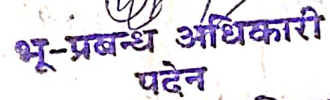 भू-प्रबन्ध अधिकारी
पदेन